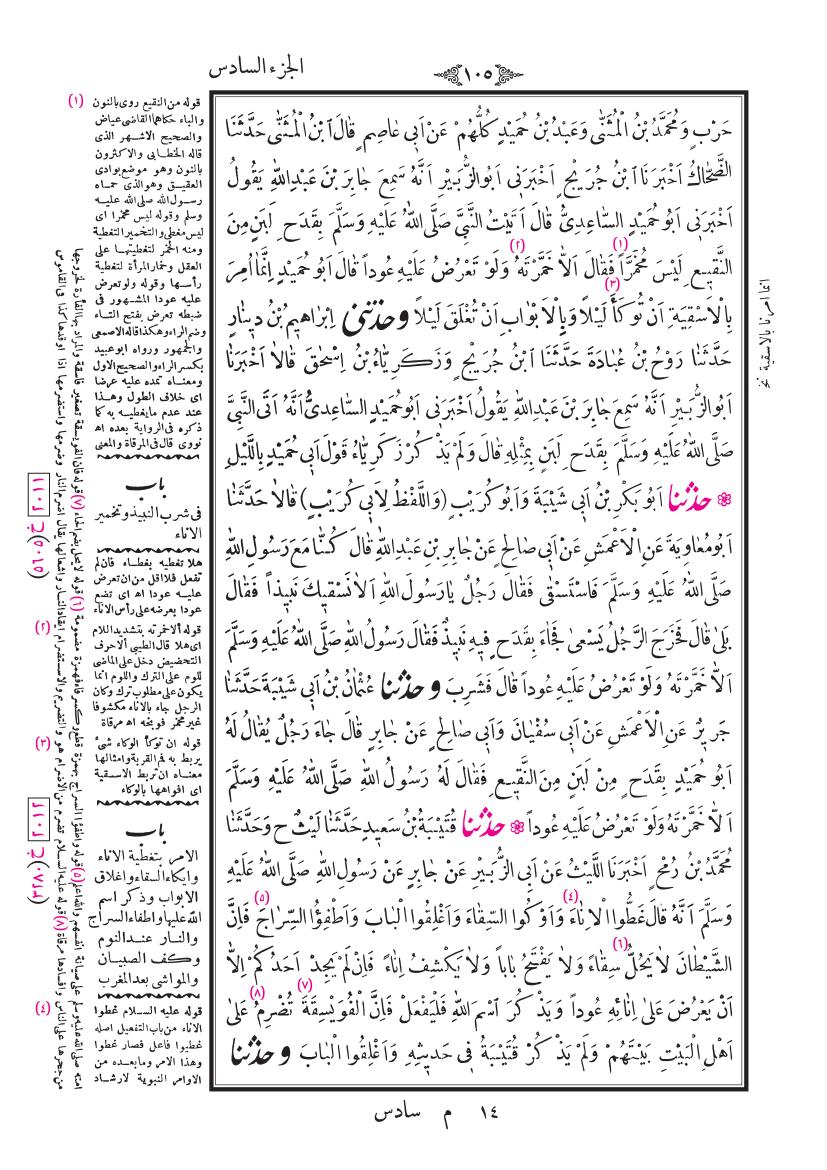 الجزء السادس
١٠٥
حَرْبٍ وَمُحَمَّدُ بْنُ الْمُثَنّٰى وَعَبْدُ بْنُ حُمَيْدٍ كُلُّهُمْ عَنْ اَبِى عَاصِمٍ قَالَ ابْنُ الْمُثَنّٰى حَدَّثَنَا
الضَّحَّاكُ اَخْبَرَنَا ابْنُ جُرَيْجٍ اَخْبَرَنِى اَبُوالزُّبَيْرِ اَنَّهُ سَمِعَ جَابِرَ بْنَ عَبْدِاللّٰهِ يَقُولُ
اَخْبَرَنِى اَبُوحُمَيْدٍ السَّاعِدِىُّ قَالَ اَتَيْتُ النَّبِىَّ صَلَّى اللّٰهُ عَلَيْهِ وَسَلَّمَ بِقَدَحِ لَبَنٍ مِنَ
النَّقِيعِ لَيْسَ مُخَمَّرًا (١) فَقَالَ اَلاَّ خَمَّرْتَهُ (٢) وَلَوْ تَعْرُضُ عَلَيْهِ عُوداً قَالَ اَبُوحُمَيْدٍ اِنَّمَا اُمِرَ
بِالْاَسْقِيَةِ اَنْ تُوكَأَ (٣) لَيْلاً وَبِالْاَبْوَابِ اَنْ تُغْلَقَ لَيْلاً وحدثنى اِبْرَاهِيمُ بْنُ دِينَارٍ
حَدَّثَنَا رَوْحُ بْنُ عُبَادَةَ حَدَّثَنَا ابْنُ جُرَيْجٍ وَزَكَرِيَّاءُ بْنُ اِسْحٰقَ قَالاَ اَخْبَرَنَا
اَبُوالزُّبَيْرِ اَنَّهُ سَمِعَ جَابِرَ بْنَ عَبْدِاللّٰهِ يَقُولُ اَخْبَرَنِى اَبُوحُمَيْدٍ السَّاعِدِىُّ اَنَّهُ اَتَى النَّبِىَّ
صَلَّى اللّٰهُ عَلَيْهِ وَسَلَّمَ بِقَدَحِ لَبَنٍ بِمِثْلِهِ قَالَ وَلَمْ يَذْكُرْ زَكَرِيَّاءُ قَوْلَ اَبِى حُمَيْدٍ بِاللَّيْلِ
حدثنا اَبُو بَكْرِ بْنُ اَبِى شَيْبَةَ وَاَبُو كُرَيْبٍ (وَاللَّفْظُ لِاَبِى كُرَيْبٍ) قَالاَ حَدَّثَنَا
اَبُومُعَاوِيَةَ عَنِ الْاَعْمَشِ عَنْ اَبِى صَالِحٍ عَنْ جَابِرِ بْنِ عَبْدِاللّٰهِ قَالَ كُنَّا مَعَ رَسُولِ اللّٰهِ
صَلَّى اللّٰهُ عَلَيْهِ وَسَلَّمَ فَاسْتَسْقٰى فَقَالَ رَجُلٌ يَارَسُولَ اللّٰهِ اَلاَ نَسْقِيكَ نَبِيذاً فَقَالَ
بَلٰى قَالَ فَخَرَجَ الرَّجُلُ يَسْعٰى فَجَاءَ بِقَدَحٍ فِيهِ نَبِيذٌ فَقَالَ رَسُولُ اللّٰهِ صَلَّى اللّٰهُ عَلَيْهِ وَسَلَّمَ
اَلاَّ خَمَّرْتَهُ وَلَوْ تَعْرُضُ عَلَيْهِ عُوداً قَالَ فَشَرِبَ وحدثنا عُثْمَانُ بْنُ اَبِى شَيْبَةَ حَدَّثَنَا
جَرِيرٌ عَنِ الْاَعْمَشِ عَنْ اَبِى سُفْيَانَ وَاَبِى صَالِحٍ عَنْ جَابِرٍ قَالَ جَاءَ رَجُلٌ يُقَالُ لَهُ
اَبُو حُمَيْدٍ بِقَدَحٍ مِنْ لَبَنٍ مِنَ النَّقِيعِ فَقَالَ لَهُ رَسُولُ اللّٰهِ صَلَّى اللّٰهُ عَلَيْهِ وَسَلَّمَ
اَلاَّ خَمَّرْتَهُ وَلَوْ تَعْرُضُ عَلَيْهِ عُوداً حدثنا قُتَيْبَةُ بْنُ سَعِيدٍ حَدَّثَنَا لَيْثٌ ح وَحَدَّثَنَا
مُحَمَّدُ بْنُ رُمْحٍ اَخْبَرَنَا اللَّيْثُ عَنْ اَبِى الزُّبَيْرِ عَنْ جَابِرٍ عَنْ رَسُولِ اللّٰهِ صَلَّى اللّٰهُ عَلَيْهِ
وَسَلَّمَ اَنَّهُ قَالَ غَطُّوا الْاِنَاءَ (٤) وَاَوْكُوا السِّقَاءَ وَاَغْلِقُوا الْبَابَ وَاَطْفِؤُا السِّرَاجَ (٥) فَاِنَّ
الشَّيْطَانَ لاَ يَحُلُّ (٦) سِقَاءً وَلاَ يَفْتَحُ بَاباً وَلاَ يَكْشِفُ اِنَاءً فَاِنْ لَمْ يَجِدْ اَحَدُكُمْ اِلاَّ
اَنْ يَعْرُضَ عَلٰى اِنَائِهِ عُوداً وَيَذْكُرَ اسْمَ اللّٰهِ فَلْيَفْعَلْ فَاِنَّ الْفُوَيْسِقَةَ (٧) تُضْرِمُ (٨) عَلٰى
اَهْلِ الْبَيْتِ بَيْتَهُمْ وَلَمْ يَذْكُرْ قُتَيْبَةُ فِى حَدِيثِهِ وَاَغْلِقُوا الْبَابَ وحدثنا
(١) قوله من النقيع روى بالنون
والباء حكاهما القاضى عياض
والصحيح الاشهر الذى
قاله الخطابى والاكثرون
بالنون وهو موضع بوادى
العقيق وهو الذى حماه
رسول الله صلى الله عليه
وسلم وقوله ليس مخمرا اى
ليس مغطى والتخمير التغطية
ومنه الخمر لتغطيتها على
العقل وخمار المرأة لتغطية
رأسها وقوله ولو تعرض
عليه عودا المشهور فى
ضبطه تعرض بفتح التاء
وضم الراء وهكذا قاله الاصمعى
والجمهور ورواه ابوعبيد
بكسر الراء والصحيح الاول
ومعناه تمده عليه عرضا
اى خلاف الطول وهذا
عند عدم مايغطيه به كما
ذكره فى الرواية بعده اه
نووى قال فى المرقاة والمعنى
باب
فى شرب النبيذ وتخمير
الاناء
هلا تغطيه بغطاء فان لم
تفعل فلا اقل من ان تعرض
عليه عودا اه اى تضع
عودا بعرضه على رأس الاناء
(٢) قوله ألا خمرته بتشديد اللام
اى هلا قال الطيبى ألا حرف
التحضيض دخل على الماضى
للوم على الترك واللوم انما
يكون على مطلوب ترك وكان
الرجل جاء بالاناء مكشوفا
غير مخمر فوبخه اه مرقاة
(٣) قوله ان توكأ الوكاء شئ
يربط به فم القربة وامثالها
معناه ان تربط الاسقية
اى افواهها بالوكاء
باب
الامر بتغطية الاناء
وايكاء السقاء واغلاق
الابواب وذكر اسم
الله عليها واطفاء السراج
والنار عند النوم
وكف الصبيان
والمواشى بعد المغرب
(٤) قوله عليه السلام غطوا
الاناء من باب التفعيل اصله
غطيوا فاعل فصار غطوا
وهذا الامر ومابعده من
الاوامر النبوية لارشاد
امته صلى الله عليه وسلم على صيانة انفسهم والله اعلم (٥) قوله واطفؤا السراج بهمزة قطع وكسر فاء فهمزة مضمومة (٦) قوله لايحل بضم الحاء (٧) قوله فان الفويسقة تصغير فاسقة والمراد بها الفأرة لخروجها
من جحرها على الناس وافسادها مرقاة (٨) قوله عليه السلام تضرم من الاضرام هو والتضريم والاستضرام ايقاد النار واشعالها يقال اضرم النار وضرمها واستضرمها اذا اوقدها كذا فى القاموس
١٤ م سادس